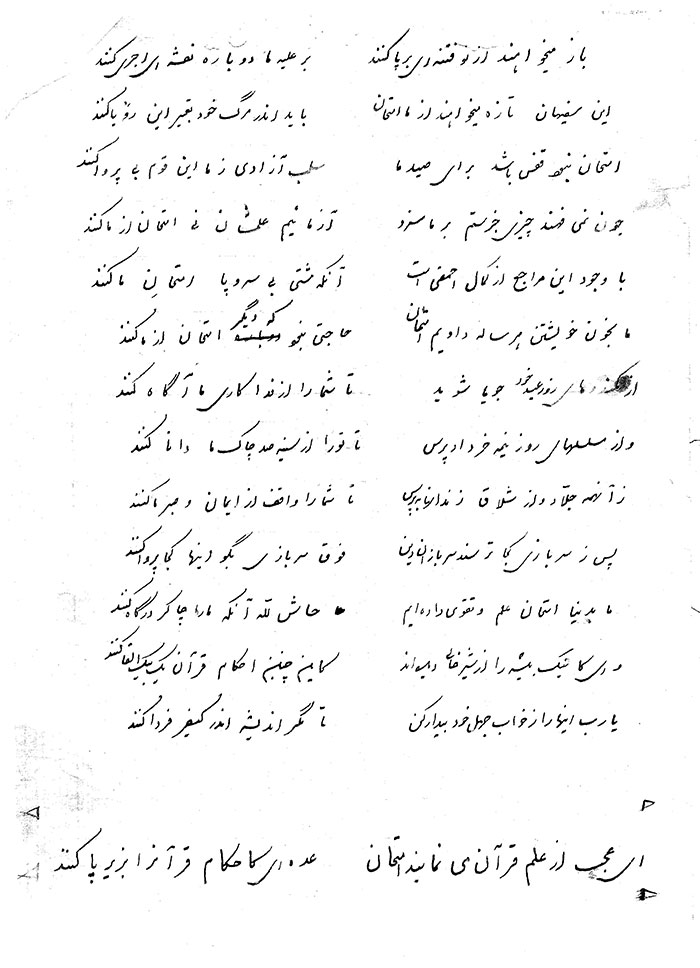 باز میخواهند از نو فتنه‌ای برپا کنند بر علیه ما دوباره نقشه‌ای اجری کنند
این سفیهان تازه میخواهند از ما امتحان باید اندر مرگ خود تعبیر این رؤیا کنند
امتحان نبود قفس باشد برای صید ما سلب آزادی ز ما این قوم بی پروا کنند
چون نمی فهمند چیزی خرستم بر ما سزد آزمائیم علمشان نی امتحان از ما کنند
با وجود این مراجع از کمال احمقی است آنکه مشتی بی سر و پا امتحان ما کنند
ما بخون خویشتن هر ساله دادیم امتحان حاجتی نبود که دیگر امتحان از ما کنند
از های روز عید خود جویا شوید تا شما را از فداکاری ما آگاه کنند
و از مسلسلهای روز نیمه خرداد پرس تا تو را از سینه صد چاک ما دانا کنند
ز آنهمه جلاد و از شلاق زندانها بپرس تا شما را واقف از ایمان و صبر ما کنند
پس ز سربازی کجا ترسند سربازان دین فوق سربازی بگو اینها کجا پروا کنند
ما بدنیا امتحان علم و تقوی داده‌ایم حاش لله آنکه ما را چاکر درگاه کنند
وای کاتیک بیشه را از شیر خالی دیده‌اند کاین چنین احکام قرآن یک بیک القا کنند
یا رب اینها را ز خواب جهل خود بیدار کن تا مگر اندیشه اندر کیفر فردا کنند
ای عجب از علم قرآن می نمایند امتحان عده‌ای کاحکام قرآنرا بزیر پا کنند